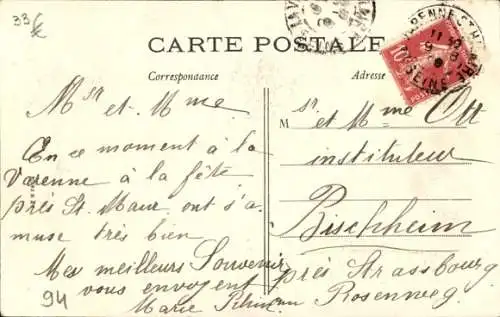 33 €
CARTE POSTALE
Correspondance
Adresse
Msr et Mme
En ce moment à la
Varenne à la fête
près St. Maur ont s'a-
muse très bien
Mes meilleurs Souvenirs
vous envoyent
Marie
94
M sr et Mme Ott
instituteur
Bischheim
près Strassbourg
Rosenweg
10